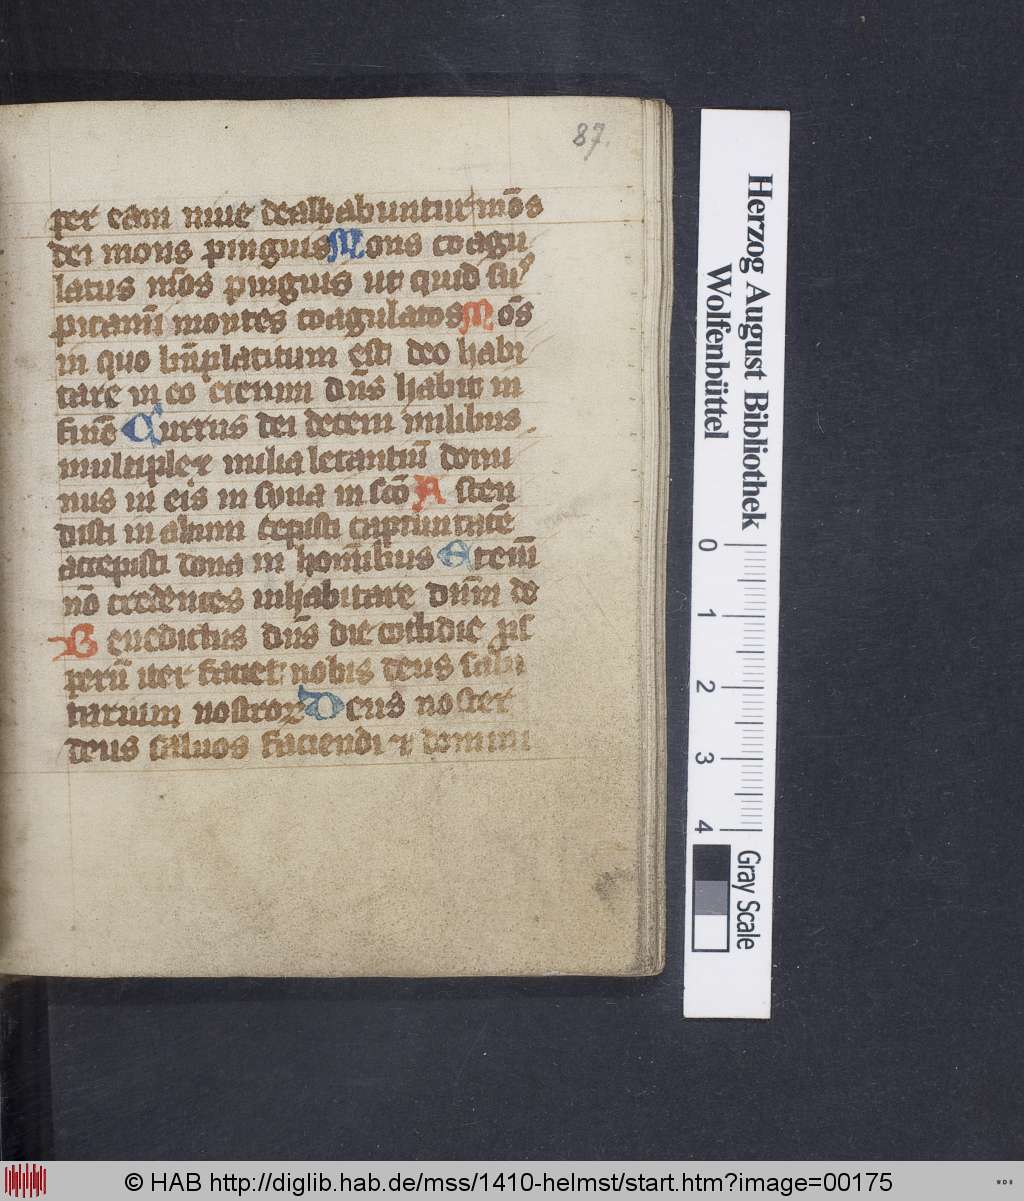 87.
per eam niue dealbabuntur mōs
dei mons pinguis Mons coagu
latus mōs pinguis ut quid su
picamī montes coagulatos Mōs
in quo bn̄placitum est deo habi
tare in eo etenim dn̄s habit in
finē Currus dei decem milibus
multiplex milia letantiū domi
nus in eis in syna in scō Ascen
disti in altum cepisti captiuitatē
accepisti dona in hominibus Etenī
nō credentes inhabitare dn̄m de
Benedictus dn̄s die cotidie ps
perū iter faciet nobis deus salu
tarium nostroꝝ Deus noster
deus saluos faciendi ⁊ domini
Herzog August Bibliothek
Wolfenbüttel
0 1 2 3 4
Gray Scale
© HAB http://diglib.hab.de/mss/1410-helmst/start.htm?image=00175